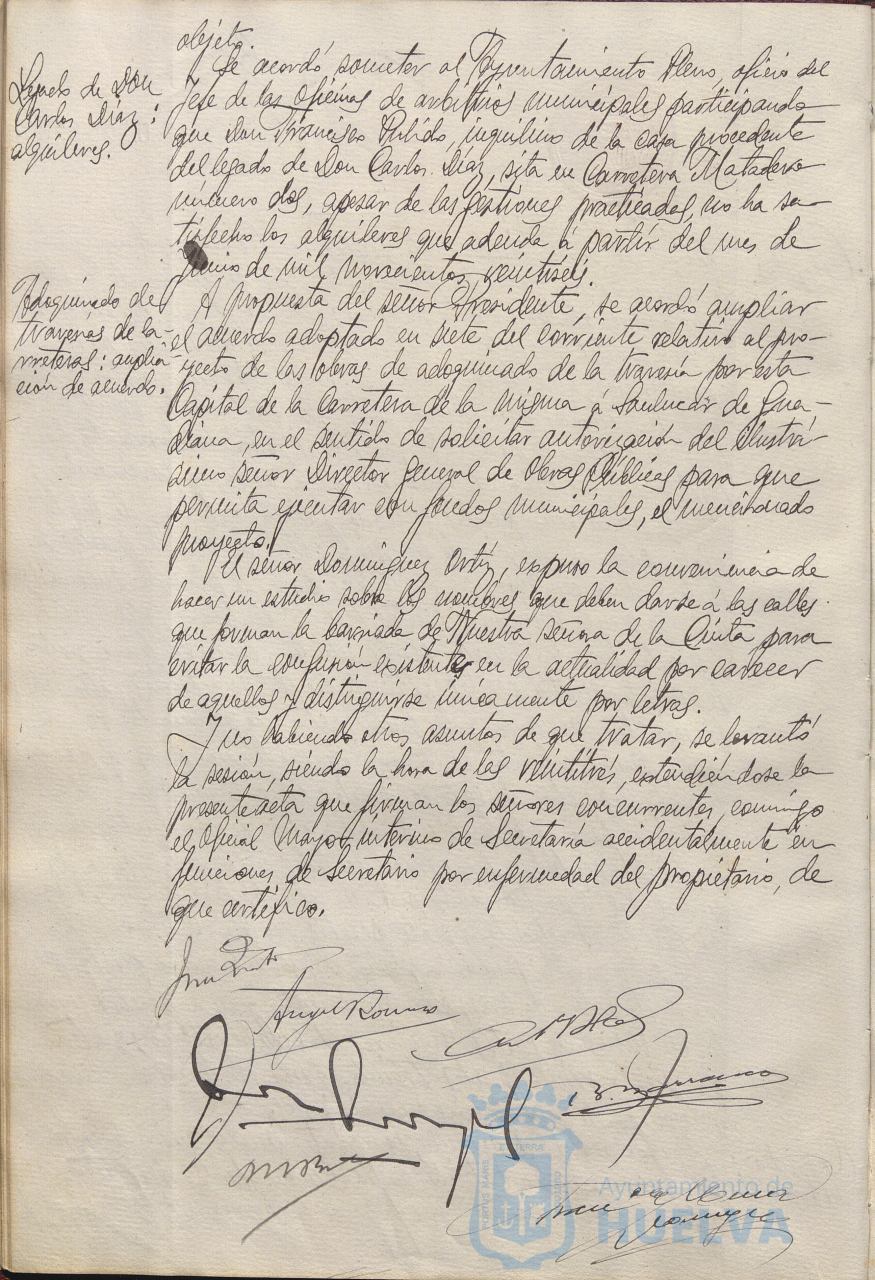 objeto.
Legado de Don
Carlos Díaz:
alquileres.
Se acordó someter al Ayuntamiento Pleno, oficio del
Jefe de las Oficinas de arbitrios municipales participando
que Don Francisco Pulido, inquilino de la casa procedente
del legado de Don Carlos Díaz, sita en Carretera Matadero
número dos, apesar de las gestiones practicadas, no ha sa-
tisfecho los alquileres que adeuda á partir del mes de
Junio de mil novecientos veintiseis.
Adoquinado de
travesías de ca-
rreteras: amplia-
ción de acuerdo.
A propuesta del señor Presidente, se acordó ampliar
el acuerdo adoptado en siete del corriente relativo al pro-
yecto de las obras de adoquinado de la travesía por esta
Capital de la Carretera de la misma á Sanlucar de Gua-
diana, en el sentido de solicitar autorización del Ilustrí-
simo señor Director General de Obras Públicas para que
permita ejecutar con fondos municipales, el mencionado
proyecto.
El señor Domínguez Ortíz, expuso la conveniencia de
hacer un estudio sobre los nombres que deben darse á las calles
que forman la barriada de Nuestra señora de la Cinta para
evitar la confusión existente en la actualidad por carecer
de aquellos y distinguirse únicamente por letras.
Y no habiendo otros asuntos de que tratar, se levantó
la sesión, siendo la hora de las veintitrés, extendiéndose la
presente acta que firman los señores concurrentes, conmigo
el Oficial Mayor interino de Secretaría accidentalmente en
funciones de Secretario por enfermedad del propietario, de
que certifico.
Angel Romero
B. Barranco
Ayuntamiento de
HUELVA